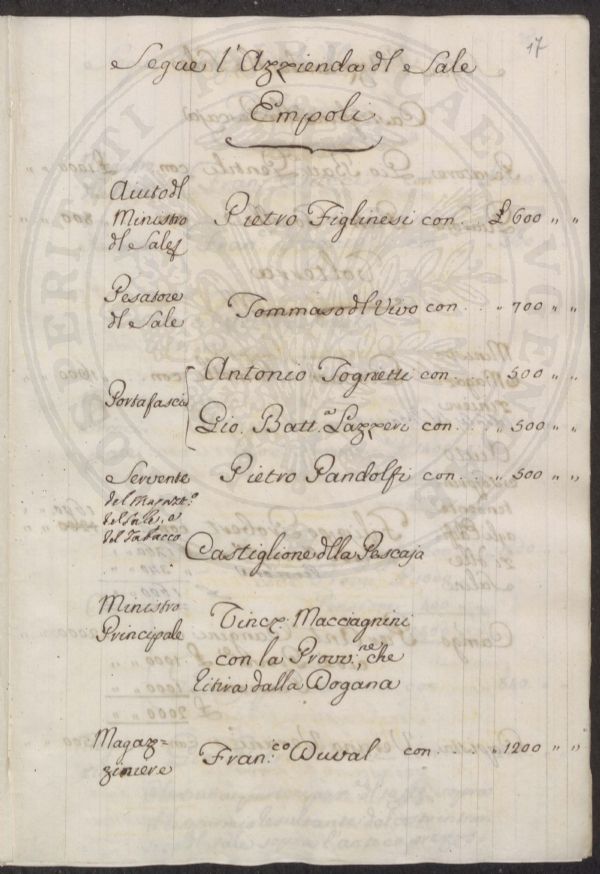 17
Segue l'Azzienda dl Sale
Empoli
Aiuto dl
Ministro
dl Sale
Pietro Figlinesi con . £ 600 „ „
Pesatore
dl Sale
Tommaso dl Vivo con . . . „ 700 „ „
Portafascio
Antonio Tognetti con . . . 500 „ „
Gio. Batt.a Lazzeri con . . „ 500 „ „
Servente
del Magazz.o
del Sale, e
del Tabacco
Pietro Pandolfi con . . „ 500 „ „
Castiglione dlla Pescaja
Ministro
Principale
Vincz. Macciagnini
con la Provv.ne, che
tira dalla Dogana
Magaz=
ziniere
Fran.co Duval con . . . . „ 1200 „ „